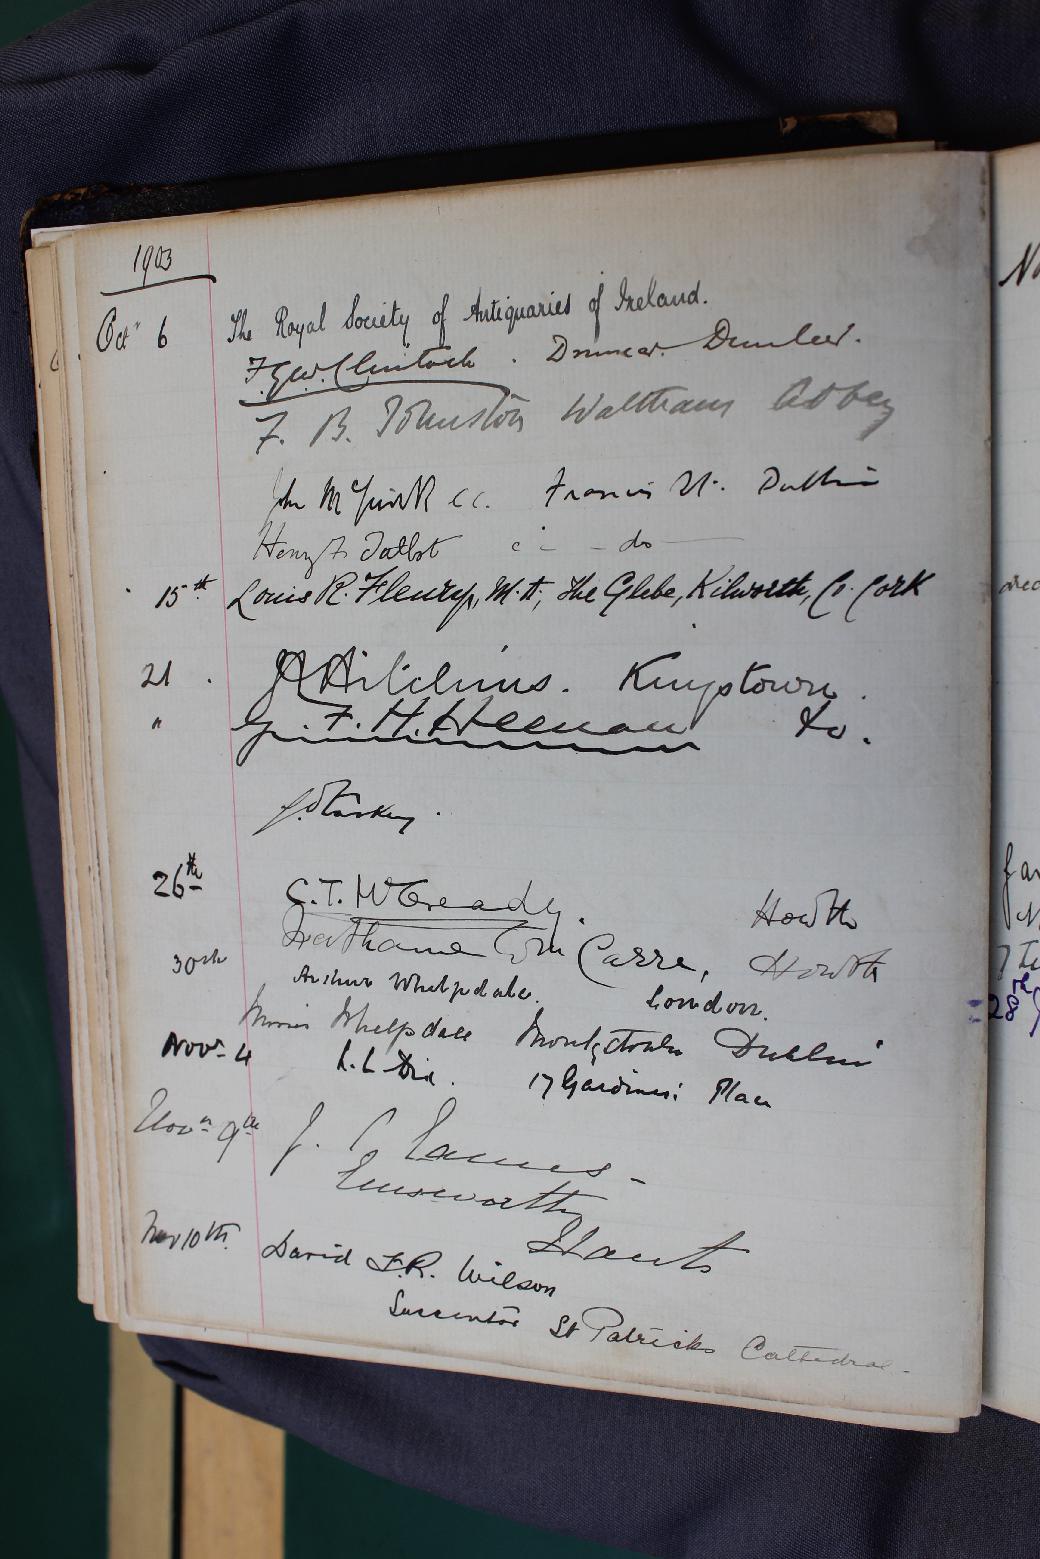 1903
Oct 6 The Royal Society of Antiquaries of Ireland.
F.G. McClintock. Drumcar. Dunleer.
F. B. Johnston Waltham Abbey
John McGuirk C.C. Francis St. Dublin
Henry Talbot do
15th Louis R. Fleury, M.A., The Glebe, Kilworth, Co. Cork
21 Kingstown.
" F. H. Heenan do.
26th C. T. McCready. Howth
Carre, Howth
30th Arthur Whelpdale. London.
Whelpdale Monkstown Dublin
Novr 4 17 Gardiner's Place
Novr 9th J. C.
Emsworth
Hants
Nov 10th. David F.R. Wilson
Succentor St Patricks Cathedral.
28th